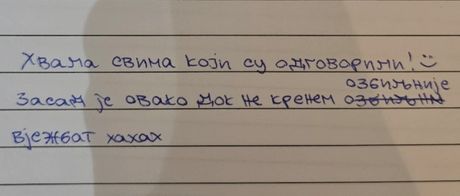 Хвала свима који су одговорили! :)
Засад је овако док не кренем озбиљније
вјежбат хахах